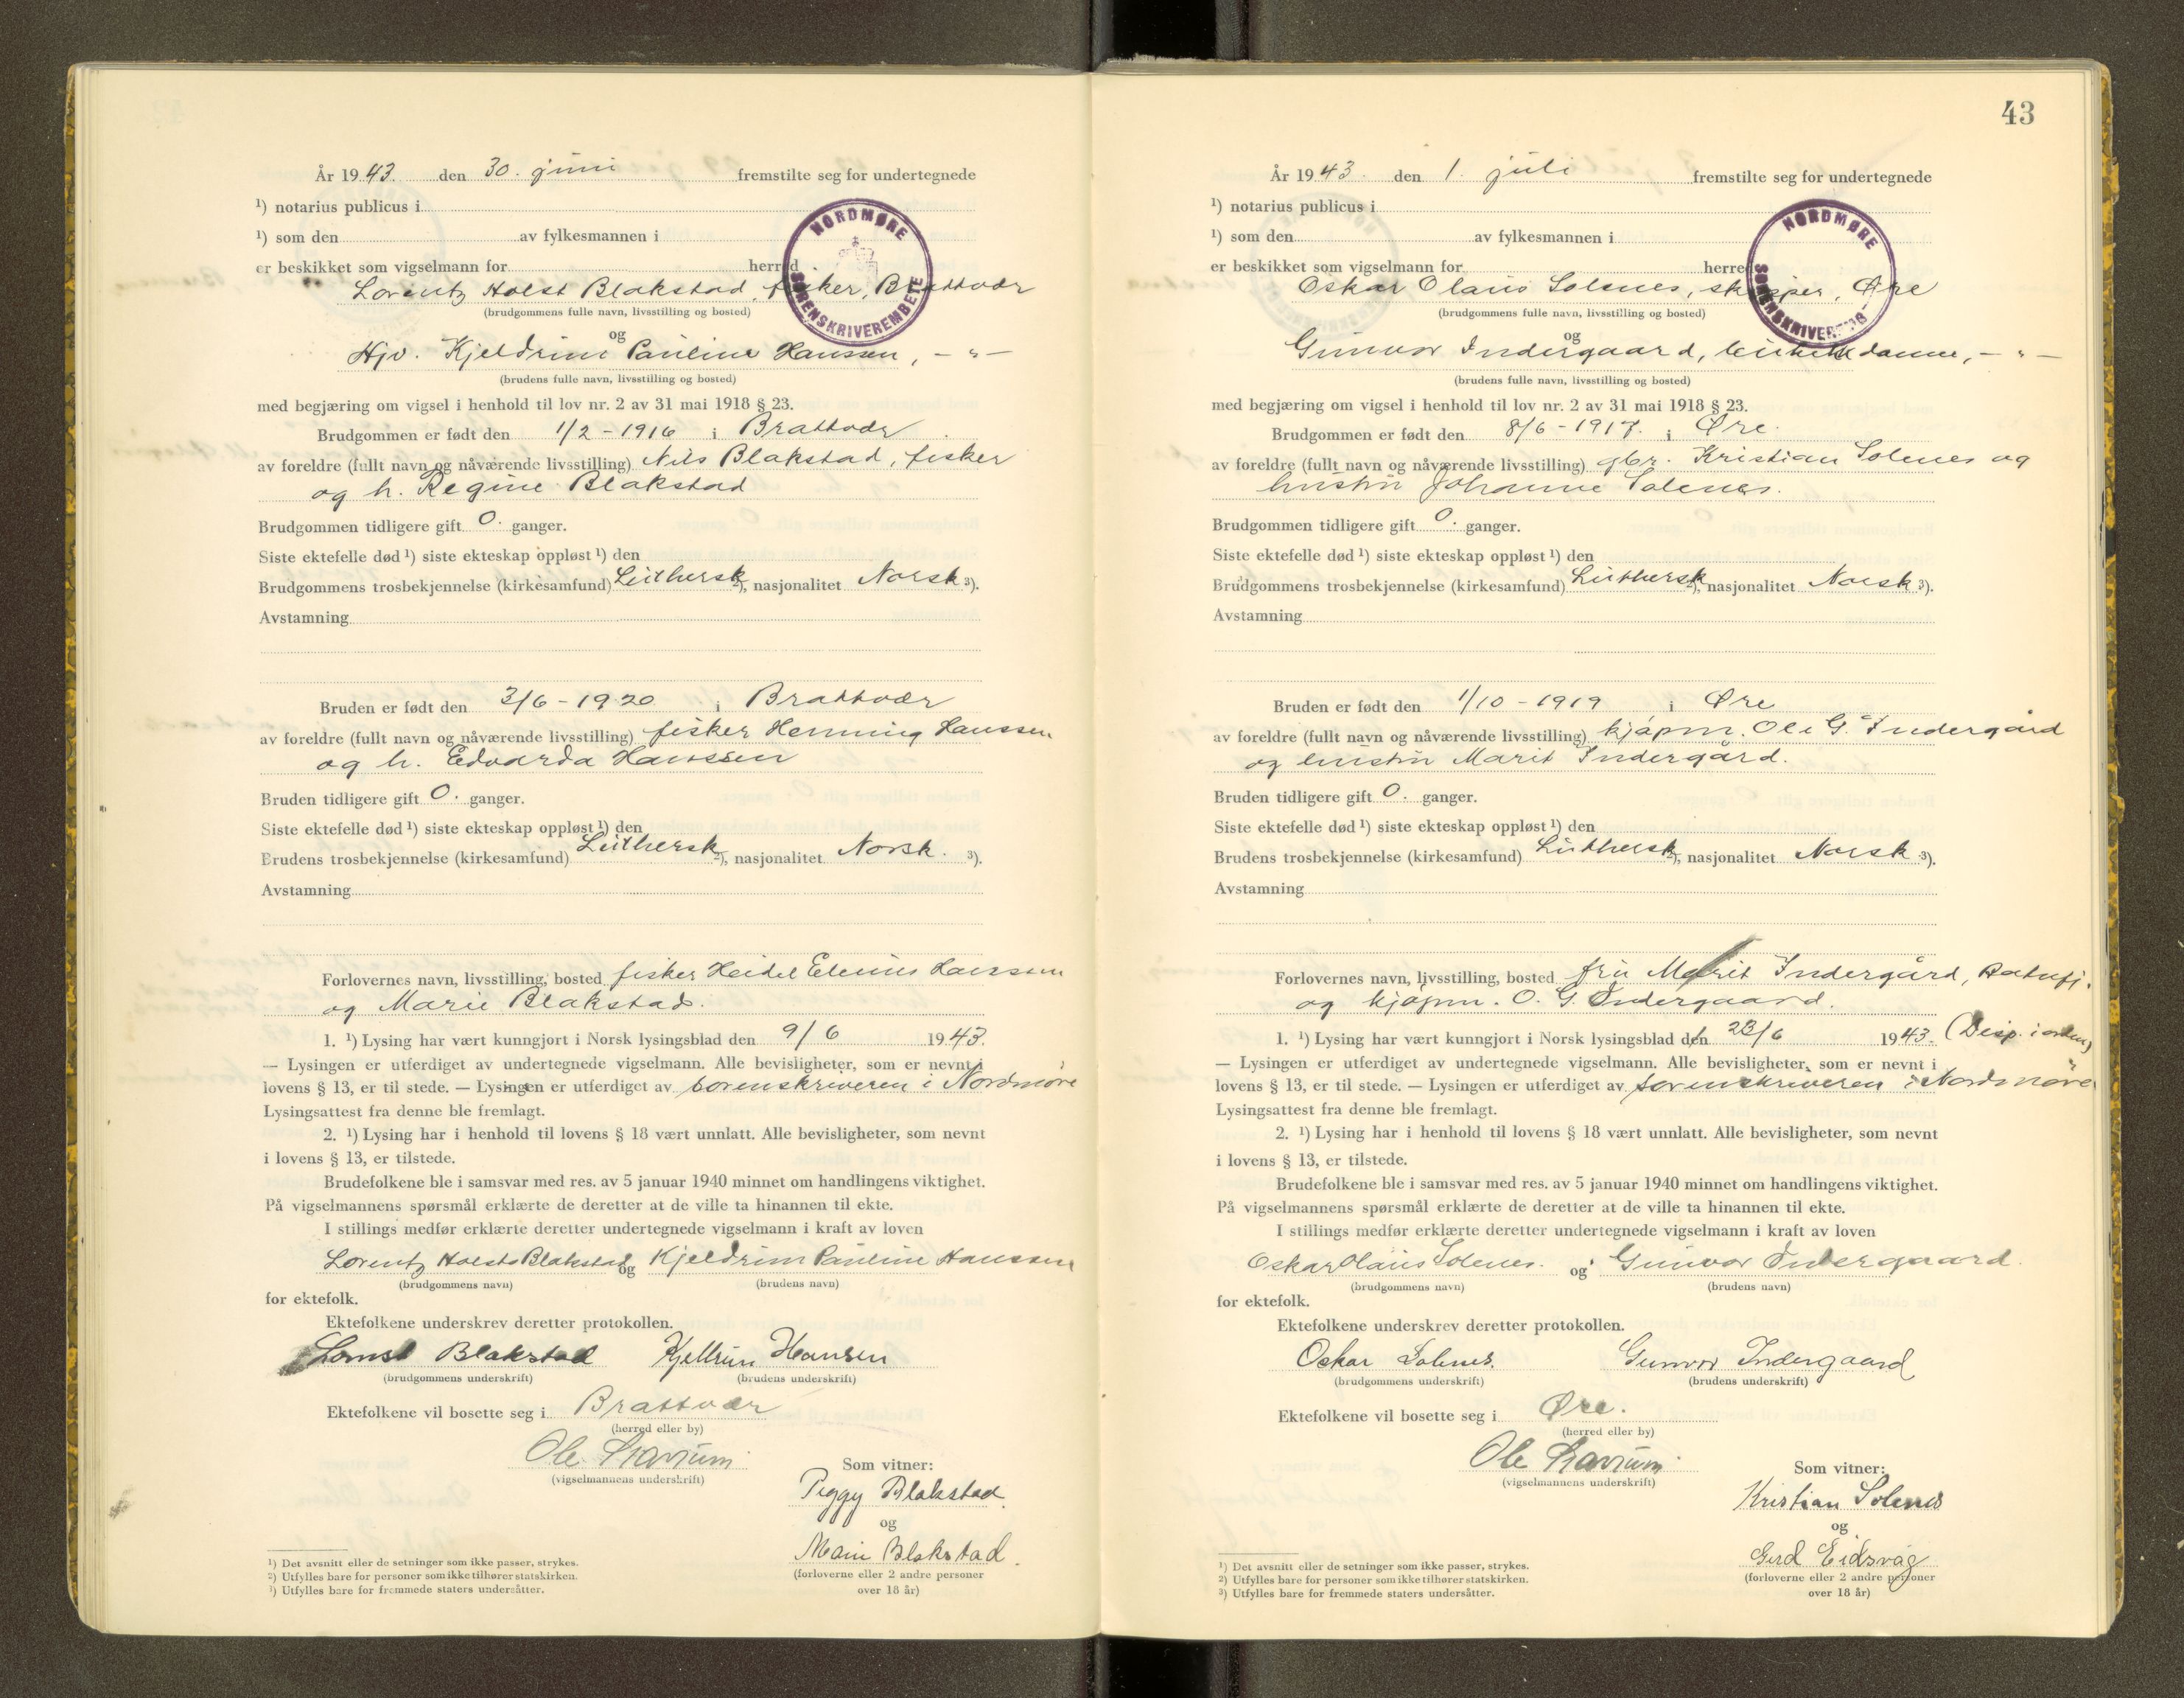 År 1943. den 30. juni fremstilte seg for undertegnede
¹) notarius publicus i
¹) som den av fylkesmannen i
er beskikket som vigselmann for herred
NORDMØRE
SORENSKRIVEREMBETE
Lorentz Holst Blakstad, fisker, Brattvær
(brudgommens fulle navn, livsstilling og bosted)
og
Hjv. Kjeldrun Pauline Hanssen, – " –
(brudens fulle navn, livsstilling og bosted)
med begjæring om vigsel i henhold til lov nr. 2 av 31 mai 1918 § 23.
Brudgommen er født den 1/2 - 1916 i Brattvær
av foreldre (fullt navn og nåværende livsstilling) Nils Blakstad, fisker
og h. Regine Blakstad
Brudgommen tidligere gift 0. ganger.
Siste ektefelle død ¹) siste ekteskap oppløst ¹) den
Brudgommens trosbekjennelse (kirkesamfund) Luthersk ²), nasjonalitet Norsk ³).
Avstamning
Bruden er født den 3/6 - 1920 i Brattvær
av foreldre (fullt navn og nåværende livsstilling) fisker Henning Hanssen
og h. Edvarda Hanssen
Bruden tidligere gift 0. ganger.
Siste ektefelle død ¹) siste ekteskap oppløst ¹) den
Brudens trosbekjennelse (kirkesamfund) Luthersk ²), nasjonalitet Norsk. ³).
Avstamning
Forlovernes navn, livsstilling, bosted fisker Hanssen
og Marie Blakstad.
1. ¹) Lysing har vært kunngjort i Norsk lysingsblad den 9/6 1943.
— Lysingen er utferdiget av undertegnede vigselmann. Alle bevisligheter, som er nevnt i
lovens § 13, er til stede. — Lysingen er utferdiget av sorenskriveren i Nordmøre
Lysingsattest fra denne ble fremlagt.
2. ¹) Lysing har i henhold til lovens § 18 vært unnlatt. Alle bevisligheter, som nevnt
i lovens § 13, er tilstede.
Brudefolkene ble i samsvar med res. av 5 januar 1940 minnet om handlingens viktighet.
På vigselmannens spørsmål erklærte de deretter at de ville ta hinannen til ekte.
I stillings medfør erklærte deretter undertegnede vigselmann i kraft av loven
Lorentz Holst Blakstad og Kjeldrun Pauline Hanssen
(brudgommens navn) (brudens navn)
for ektefolk.
Ektefolkene underskrev deretter protokollen.
Blakstad Kjellrun Hansen
(brudgommens underskrift) (brudens underskrift)
Ektefolkene vil bosette seg i Brattvær
(herred eller by)
Ole
(vigselmannens underskrift)
Som vitner:
Peggy Blakstad
og
Blakstad.
(forloverne eller 2 andre personer
over 18 år)
¹) Det avsnitt eller de setninger som ikke passer, strykes.
²) Utfylles bare for personer som ikke tilhører statskirken.
³) Utfylles bare for fremmede staters undersåtter.
43
År 1943. den 1. juli fremstilte seg for undertegnede
¹) notarius publicus i
¹) som den av fylkesmannen i
er beskikket som vigselmann for herred
NORDMØRE
Oskar Olaus Solenes, skipper, Øre
(brudgommens fulle navn, livsstilling og bosted)
og
Gunvor Indergaard, butikkdame, – " –
(brudens fulle navn, livsstilling og bosted)
med begjæring om vigsel i henhold til lov nr. 2 av 31 mai 1918 § 23.
Brudgommen er født den 8/6 - 1917. i Øre.
av foreldre (fullt navn og nåværende livsstilling) gbr. Kristian Solenes og
hustru Johanne Solenes.
Brudgommen tidligere gift 0. ganger.
Siste ektefelle død ¹) siste ekteskap oppløst ¹) den
Brudgommens trosbekjennelse (kirkesamfund) Luthersk ²), nasjonalitet Norsk ³).
Avstamning
Bruden er født den 1/10 - 1919 i Øre
av foreldre (fullt navn og nåværende livsstilling) kjøpm. Ole G. Indergård
og hustru Marit Indergård.
Bruden tidligere gift 0. ganger.
Siste ektefelle død ¹) siste ekteskap oppløst ¹) den
Brudens trosbekjennelse (kirkesamfund) Luthersk ²), nasjonalitet Norsk ³).
Avstamning
Forlovernes navn, livsstilling, bosted fru Marit Indergård, Batnfj.
og kjøpm. O. G. Indergaard.
1. ¹) Lysing har vært kunngjort i Norsk lysingsblad den 23/6 1943. (Disp. i orden)
— Lysingen er utferdiget av undertegnede vigselmann. Alle bevisligheter, som er nevnt i
lovens § 13, er til stede. — Lysingen er utferdiget av sorenskriveren i Nordmøre
Lysingsattest fra denne ble fremlagt.
2. ¹) Lysing har i henhold til lovens § 18 vært unnlatt. Alle bevisligheter, som nevnt
i lovens § 13, er tilstede.
Brudefolkene ble i samsvar med res. av 5 januar 1940 minnet om handlingens viktighet.
På vigselmannens spørsmål erklærte de deretter at de ville ta hinannen til ekte.
I stillings medfør erklærte deretter undertegnede vigselmann i kraft av loven
Oskar Olaus Solenes. og Gunvor Indergaard.
(brudgommens navn) (brudens navn)
for ektefolk.
Ektefolkene underskrev deretter protokollen.
Oskar Solenes. Gunvor Indergaard
(brudgommens underskrift) (brudens underskrift)
Ektefolkene vil bosette seg i Øre.
(herred eller by)
Ole
(vigselmannens underskrift)
Som vitner:
Kristian Solenes
og
Gerd Eidsvåg
(forloverne eller 2 andre personer
over 18 år)
¹) Det avsnitt eller de setninger som ikke passer, strykes.
²) Utfylles bare for personer som ikke tilhører statskirken.
³) Utfylles bare for fremmede staters undersåtter.